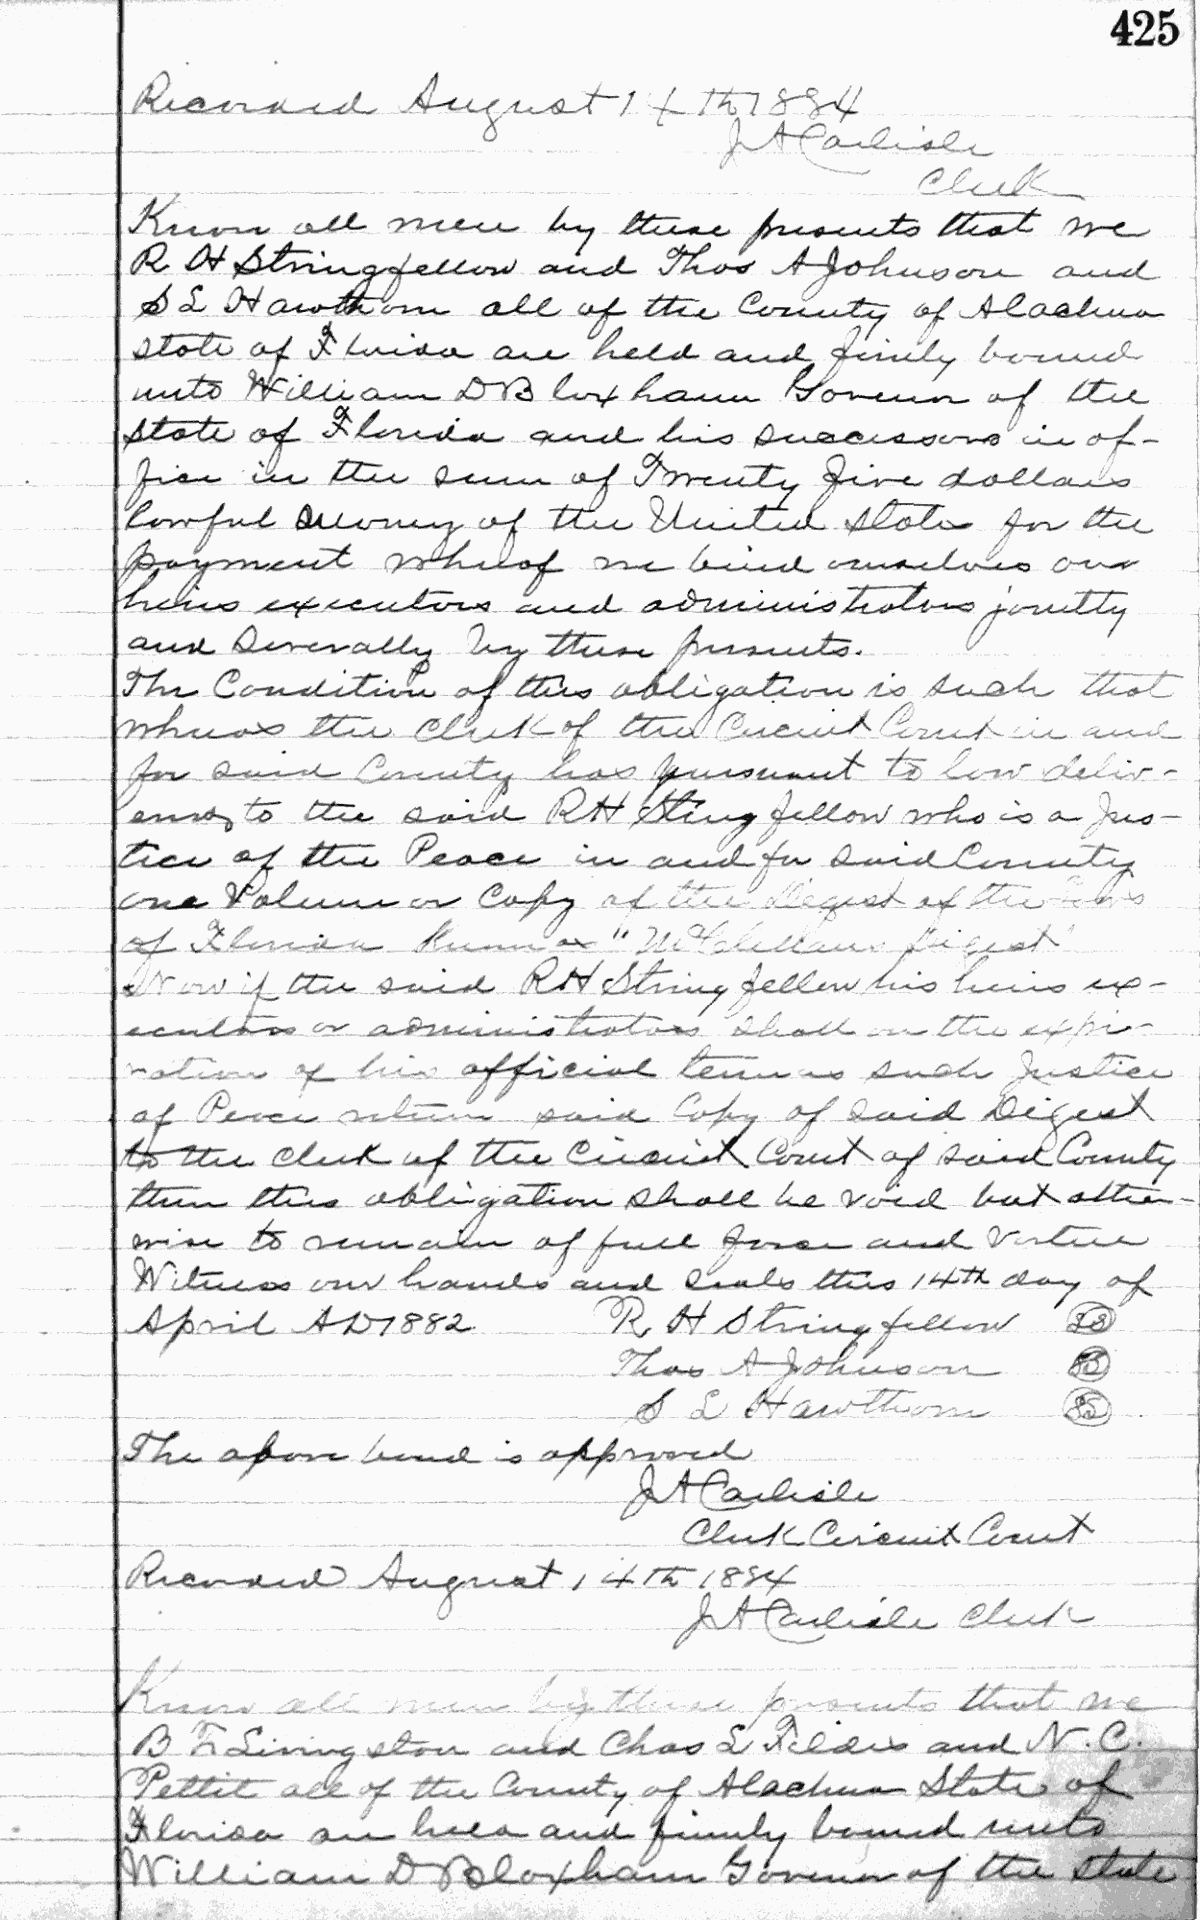 425
Recorded August 14th 1884
J A Carlisle
Clerk
Know all men by these presents that we
R H Stringfellow and Thos A Johnson and
S L Hawthorn all of the County of Alachua
state of Florida are held and firmly bound
unto William D Bloxham Govenor of the
state of Florida and his successors in of-
fice in the sum of Twenty five dollars
lawful money of the United States for the
payment wherof we bind ourselves our
heirs executors and administrators jointly
and Severally by these presents.
The Condition of this obligation is such that
wheras the clerk of the Circuit Court in and
for said County has pursuant to law deliv-
ered to the said R H Stringfellow who is a Jus-
tice of the Peace in and for said County
one Volume or Copy of the Digest of the Laws
of Florida Known as "McClellans Digest"
Now if the said R H Stringfellow his heirs ex-
ecutors or administrators shall on the expi-
ration of his official term as such Justice
of Peace return said Copy of said Digest
to the clerk of the Circuit Court of said County
then this obligation shall be void but other-
wise to remain of full force and virtue
Witness our hands and seals this 14th day of
April AD 1882 R H Stringfellow
Thos A Johnson
S L Hawthorn
The above bond is approved
J A Carlisle
Clerk Circuit Court
Recorded August 14th 1884
J A Carlisle Clerk
Know all men by these presents that we
B F Livingston and Chas L Fildes and N. C.
Pettit all of the County of Alachua State of
Florida are held and firmly bound unto
William D Bloxham Govenor of the state